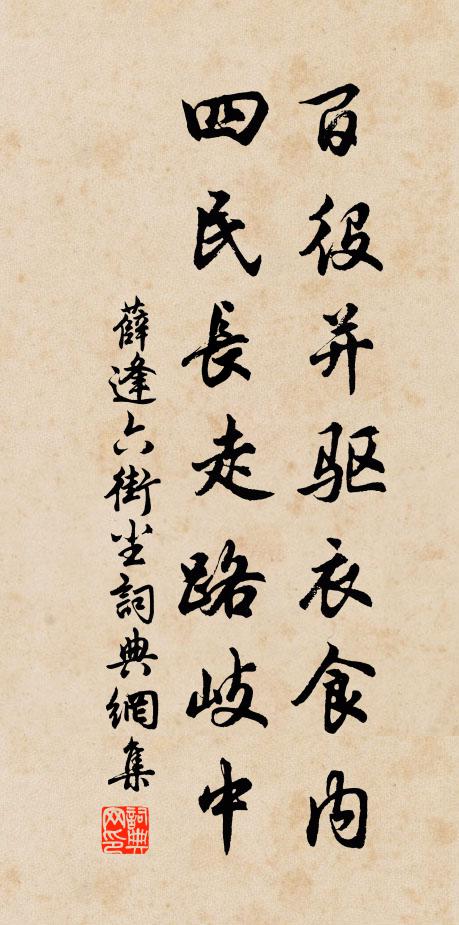 百役并驱衣食内
四民長走路岐中
薛逢六街尘詞典網集
詞典网印